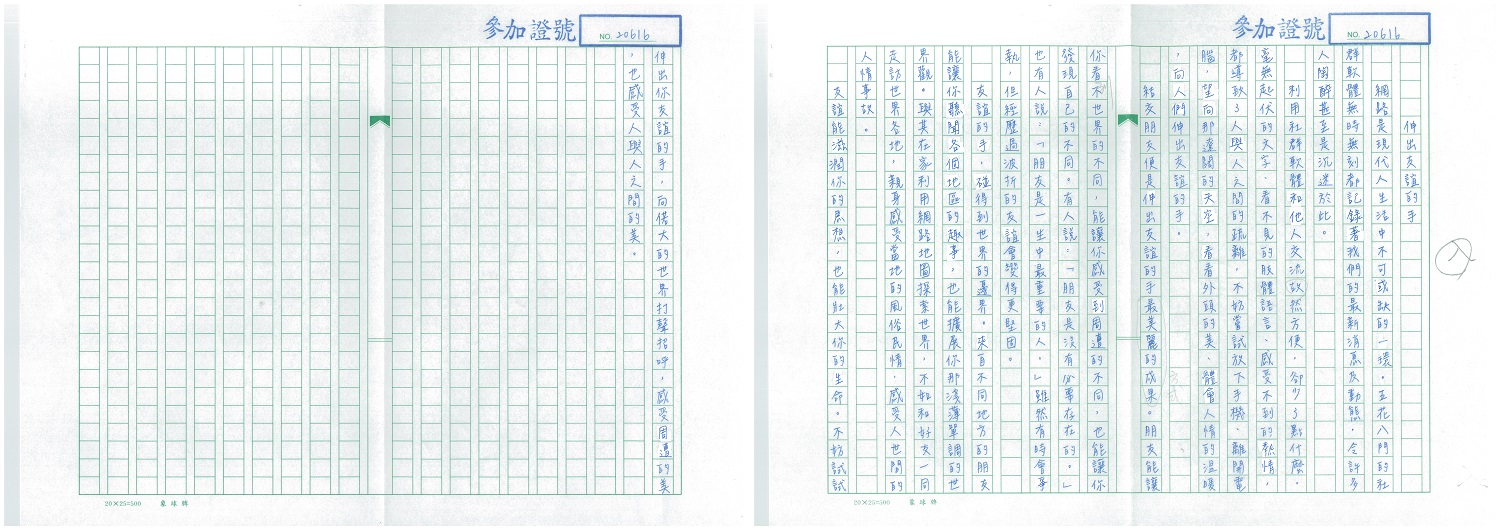 參加證號 NO. 20616
伸出友誼的手
網路是現代人生活中不可或缺的一環。五花八門的社
群軟體無時無刻都記錄著我們的最新消息及動態。令許多
人陶醉甚至是沉迷於此。
利用社群軟體和他人交流故然方便,卻少了點什麼。
毫無起伏的文字、看不見的肢體語言、感受不到的熱情,
都導致了人與人之間的疏離,不妨嘗試放下手機、離開電
腦,望向那遼闊的天空,看看外頭的美、體會人情的溫暖
,向人們伸出友誼的手。
結交朋友便是伸出友誼的手最美麗的成果。朋友能讓
你看不世界的不同,能讓你感受到周遭的不同,也能讓你
發現自己的不同。有人說:「朋友是沒有必要存在的。」
也有人說:「朋友是一生中最重要的人。」雖然有時會爭
執,但經歷過波折的友誼會變得更堅固。
友誼的手,碰得到世界的邊界。來自不同地方的朋友
能讓你聽聞各個地區的趣事,也能擴展你那淺薄單調的世
界觀。與其在家利用網路地圖探索世界,不如和好友一同
走訪世界各地,親身感受當地的風俗民情,感受人世間的
人情事故。
友誼能滋潤你的思想,也能壯大你的生命。不妨試試
20×25=500 象球牌
參加證號 NO. 20616
伸出你友誼的手,向偌大的世界打聲招呼,感受周遭的美
,也感受人與人之間的美。
20×25=500 象球牌